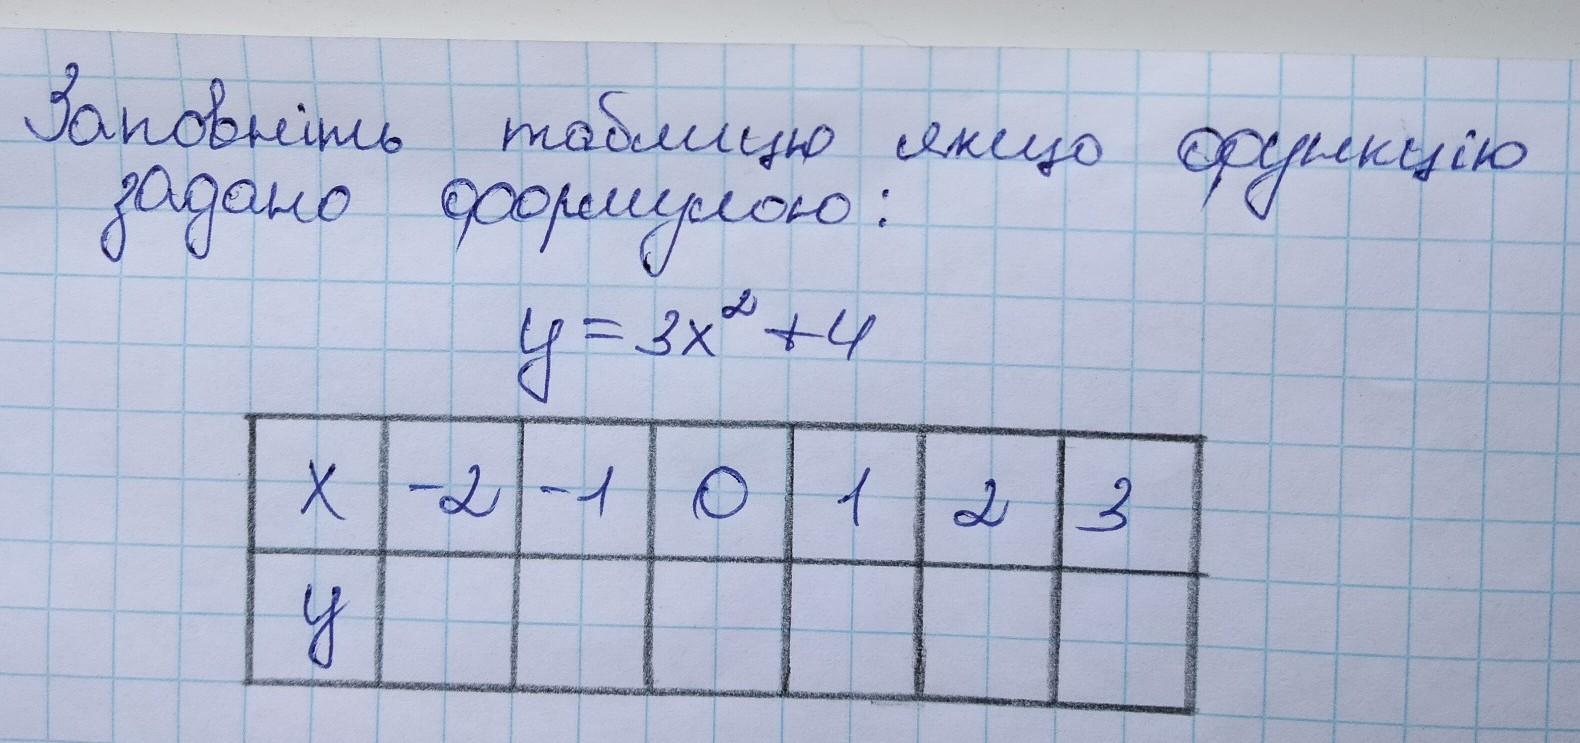 Заповніть таблицю якщо функцію
задано формулою:
y = 3x² + 4
x -2 -1 0 1 2 3
y